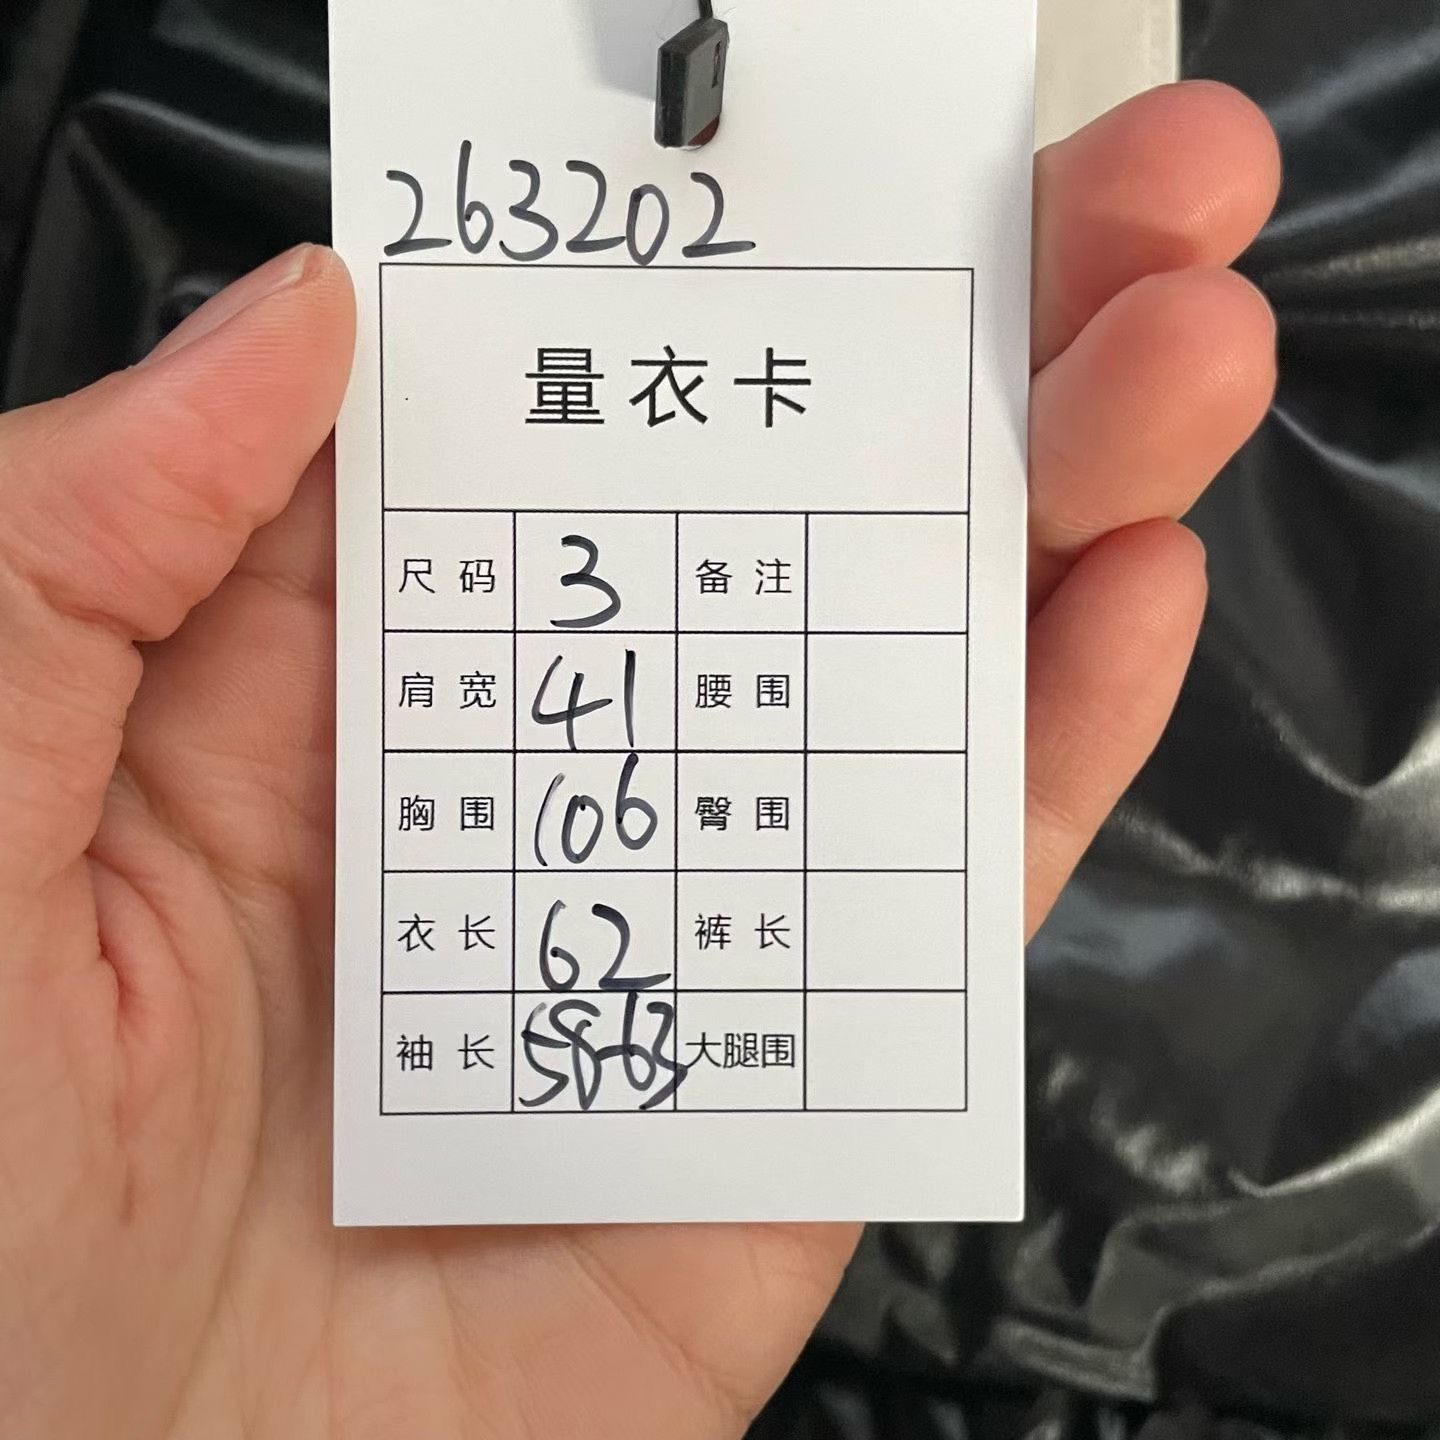 263202
量衣卡
尺码 3 备注
肩宽 41 腰围
胸围 106 臀围
衣长 62 裤长
袖长 58-63 大腿围